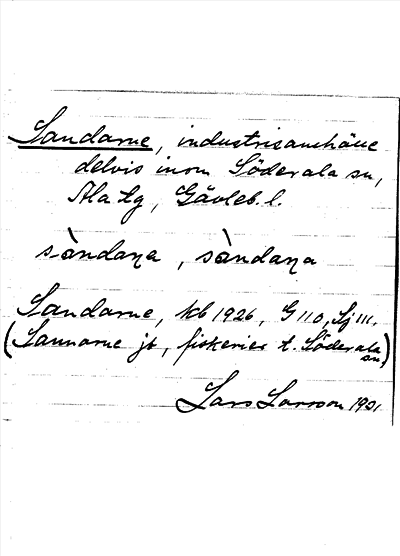 Sandarne, industrisamhälle
delvis inom Söderala sn,
Ala tg, Gävleb. l.
sàndaṇa, sàndaṇa
Sandarne, kb 1926, G 110, Sj III.
(Sannarne jb, fiskerier t. Söderala sn)
Lars Larsson 1931